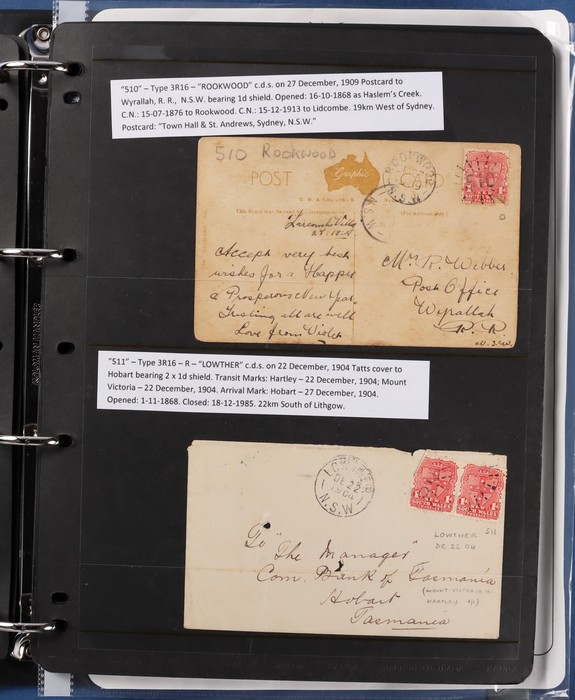 "510" – Type 3R16 – "ROOKWOOD" c.d.s. on 27 December, 1909 Postcard to
Wyrallah, R. R., N.S.W. bearing 1d shield. Opened: 16-10-1868 as Haslem's Creek.
C.N.: 15-07-1876 to Rookwood. C.N.: 15-12-1913 to Lidcombe. 19km West of Sydney.
Postcard: "Town Hall & St. Andrews, Sydney, N.S.W."
510 ROOKWOOD
POST
"Graphic"
ROOKWOOD
N.S.W
N.S.W
Accept very best
wishes for a Happie
& Prosperous New Year.
Trusting all are well
Love from Violet
Mr. R. Webber
Post Office
Wyrallah
R. R.
N.S.W.
"511" – Type 3R16 – R – "LOWTHER" c.d.s. on 22 December, 1904 Tatts cover to
Hobart bearing 2 x 1d shield. Transit Marks: Hartley – 22 December, 1904; Mount
Victoria – 22 December, 1904. Arrival Mark: Hobart – 27 December, 1904.
Opened: 1-11-1868. Closed: 18-12-1985. 22km South of Lithgow.
LOWTHER
DE 22
1904
N.S.W
511
LOWTHER
DE 22 04
To "The Manager"
Com. Bank of Tasmania
Hobart
Tasmania